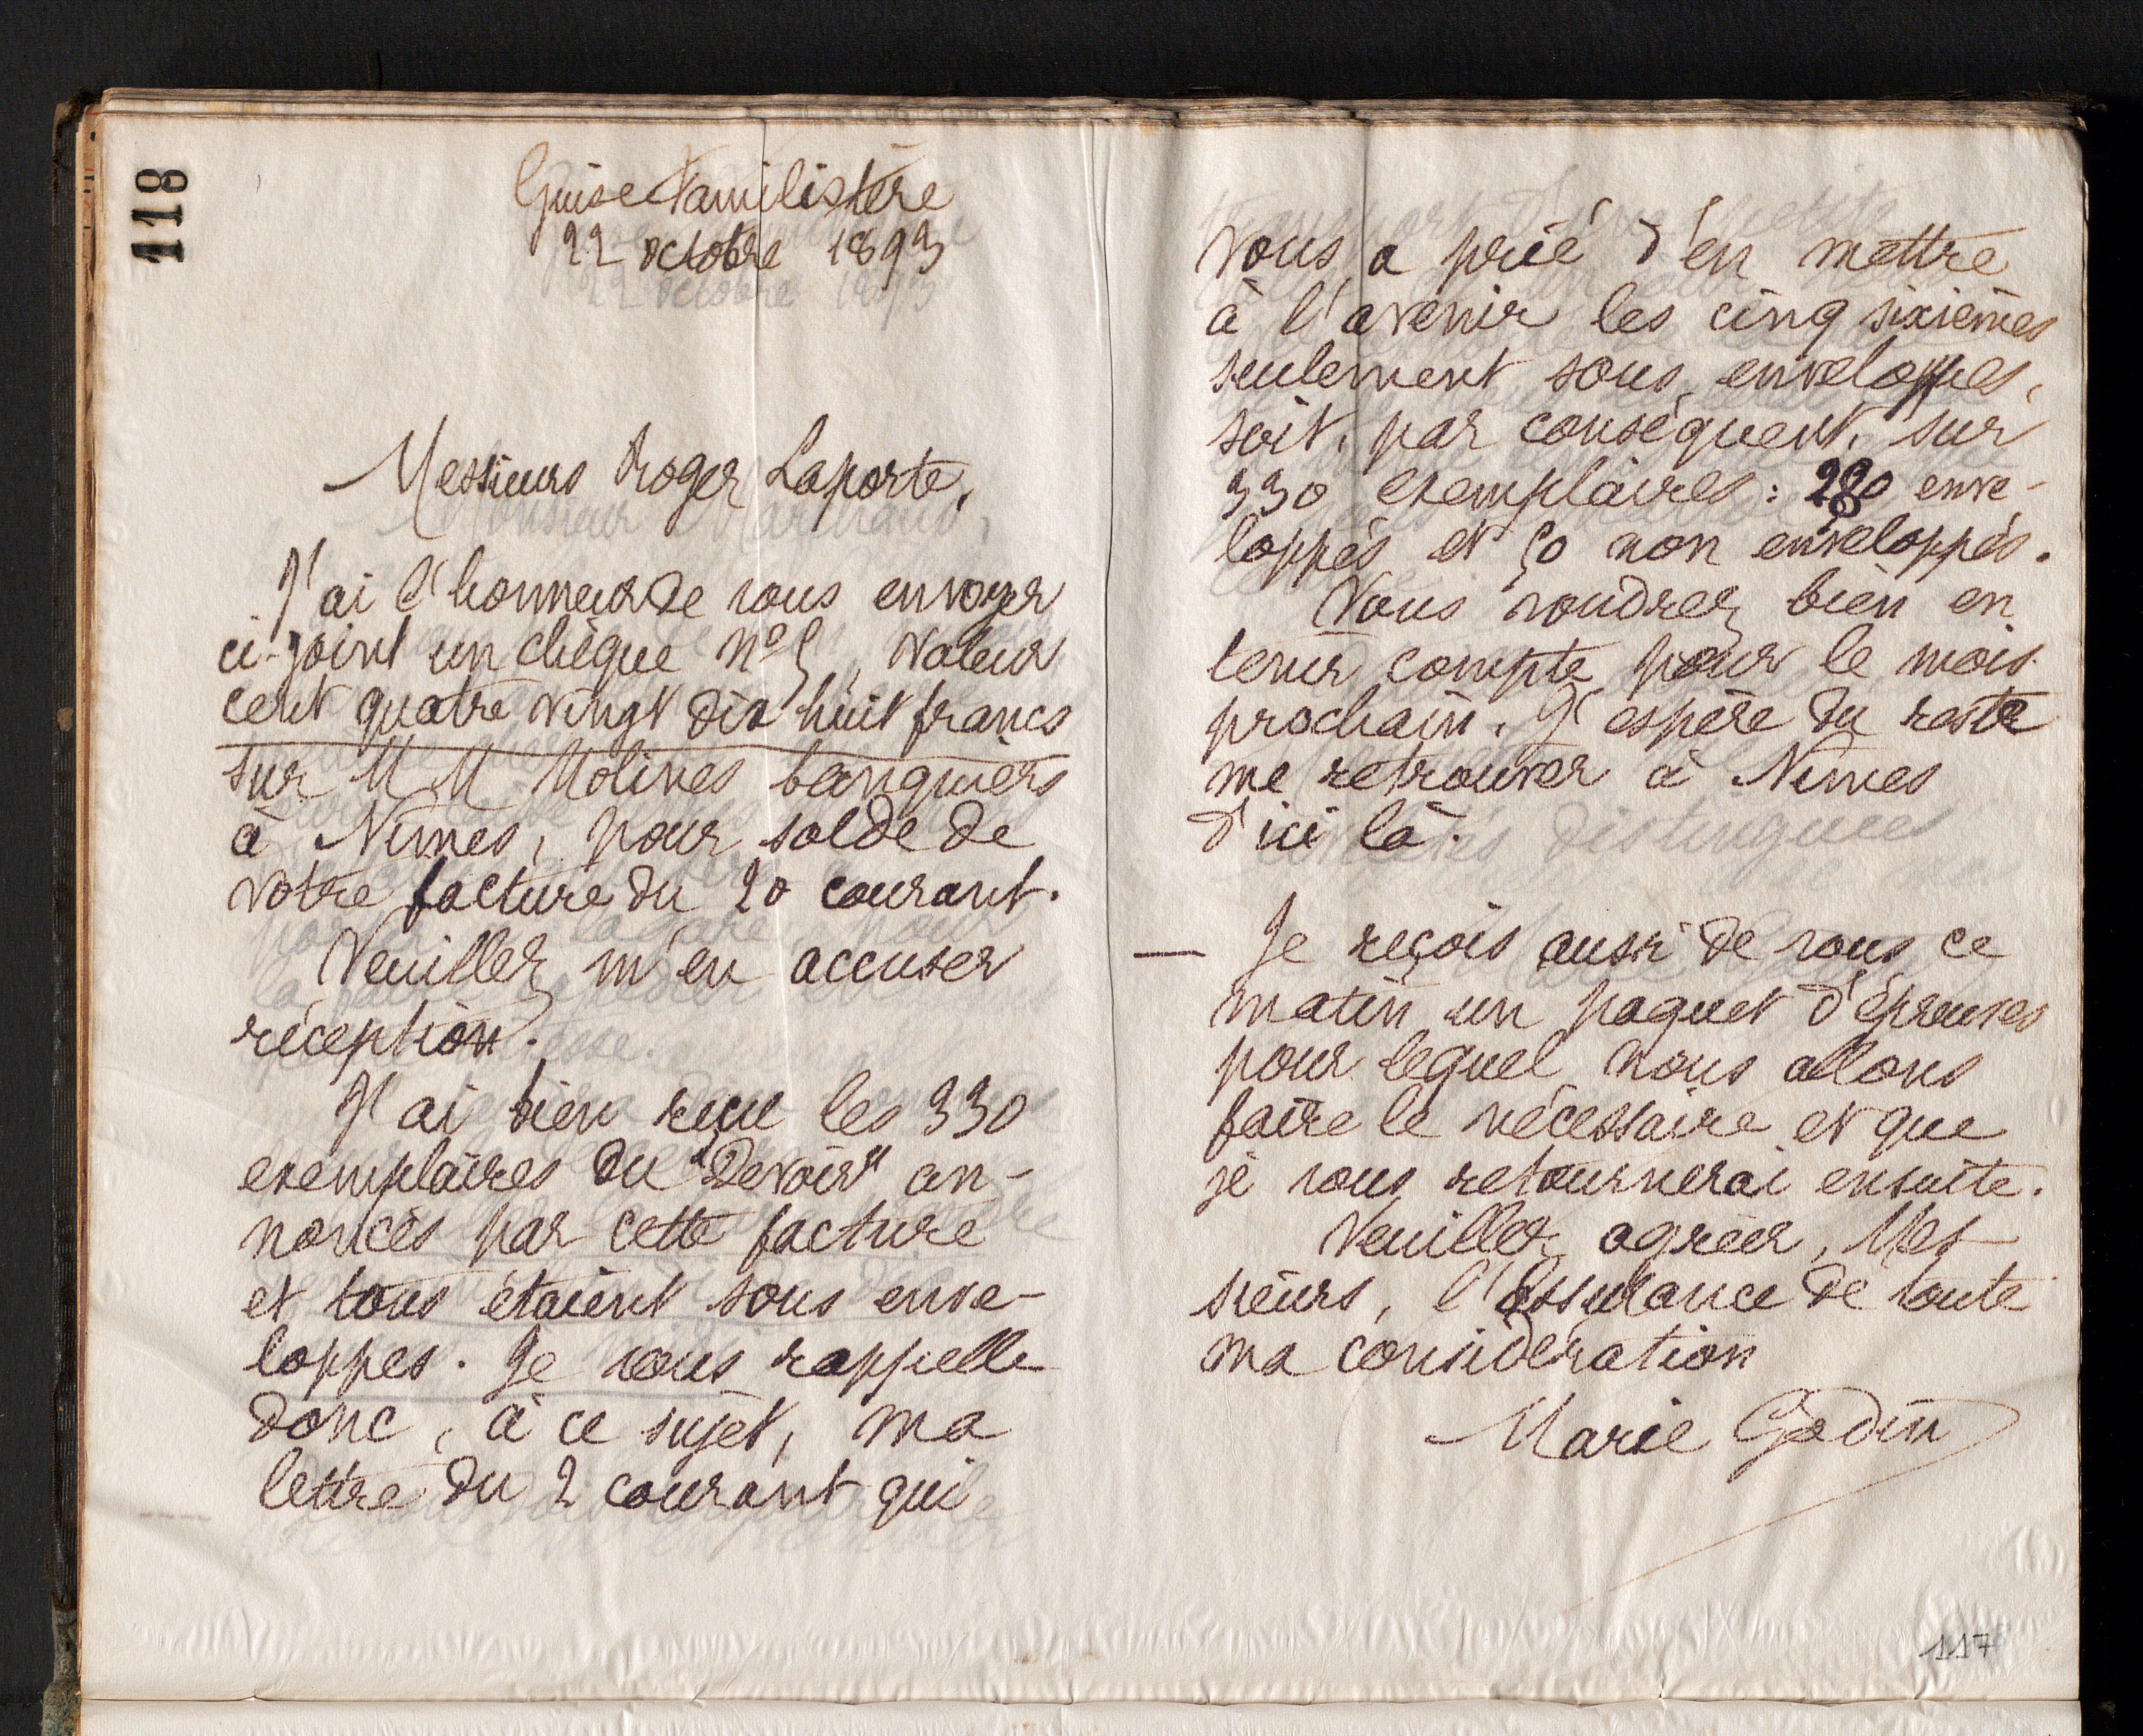 118
Guise Familistère
22 octobre 1893
Messieurs Roger Laporte,
J'ai l'honneur de vous envoyer
ci-joint un chèque n° 5, valeur
cent quatre vingt dix huit francs
sur M M Molines banquiers
à Nîmes, pour solde de
votre facture du 20 courant.
Veuillez m'en accuser
réception.
J'ai bien reçu les 330
exemplaires du "Devoir" an-
noncés par cette facture
et tous étaient sous enve-
loppes. Je vous rappelle
donc, à ce sujet, ma
lettre du 2 courant qui
vous a prié d'en mettre
à l'avenir les cinq sixièmes
seulement sous enveloppes,
soit, par conséquent, sur
330 exemplaires : 280 enve-
loppés et 50 non enveloppés.
Vous voudrez bien en
tenir compte pour le mois
prochain. J'espère du reste
me retrouver à Nîmes
d'ici là.
— Je reçois aussi de vous ce
matin un paquet d'épreuves
pour lequel nous allons
faire le nécessaire et que
je vous retournerai ensuite.
Veuillez agréer, Mes-
sieurs, l'assurance de toute
ma considération
Marie Godin
117